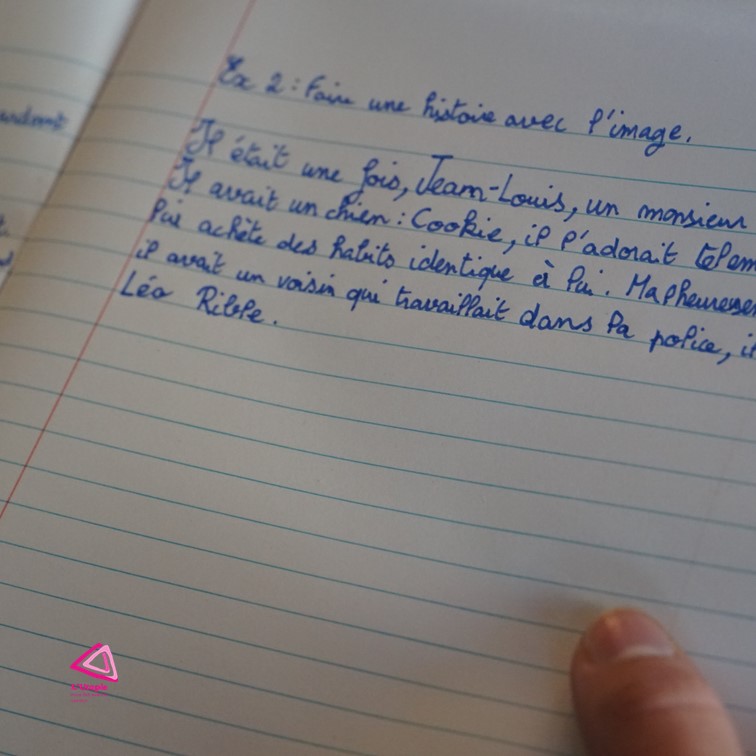 Ex 2 : Faire une histoire avec l'image.
Il était une fois, Jean-Louis, un monsieur
Il avait un chien : Cookie, il l'adorait telem
lui achète des habits identique à lui. Malheureuse
il avait un voisin qui travaillait dans la police, il
Léo